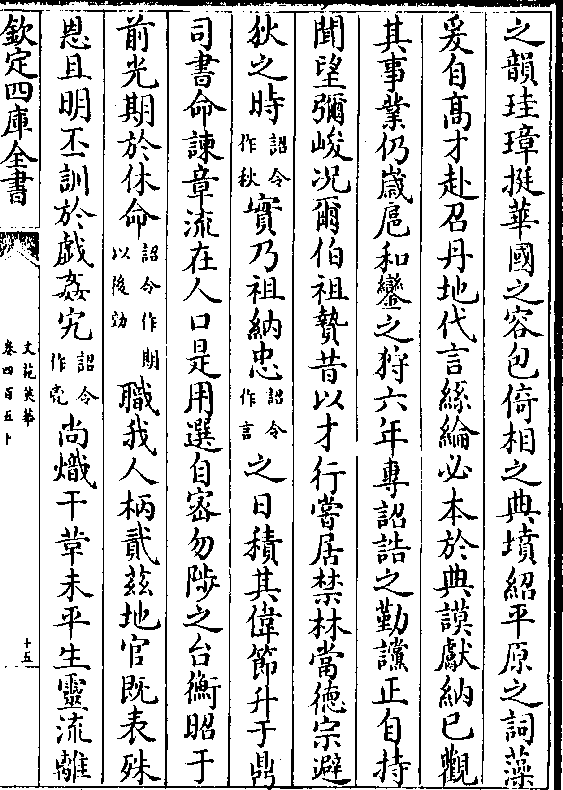 之韻珪璋挺華國之容包倚相之典墳紹平原之詞藻
爰自髙才赴召丹地代言絲綸必本於典謨獻納已觀
其事業仍歲扈和鑾之狩六年專詔誥之勤讜正自持
聞望彌峻况爾伯祖贄昔以才行嘗居禁林當德宗避
狄之時詔令作秋實乃祖納忠詔令作言之日積其偉節升于鼎
司書命諫章流在人口是用選自宻勿陟之台衡昭于
前光期於休命詔令作期以後効職我人柄貳兹地官既表殊
恩且明丕訓於戲姦宄詔令作亮尚熾干革未平生靈流離
欽定四庫全書
文苑英華
卷四百五十
十五